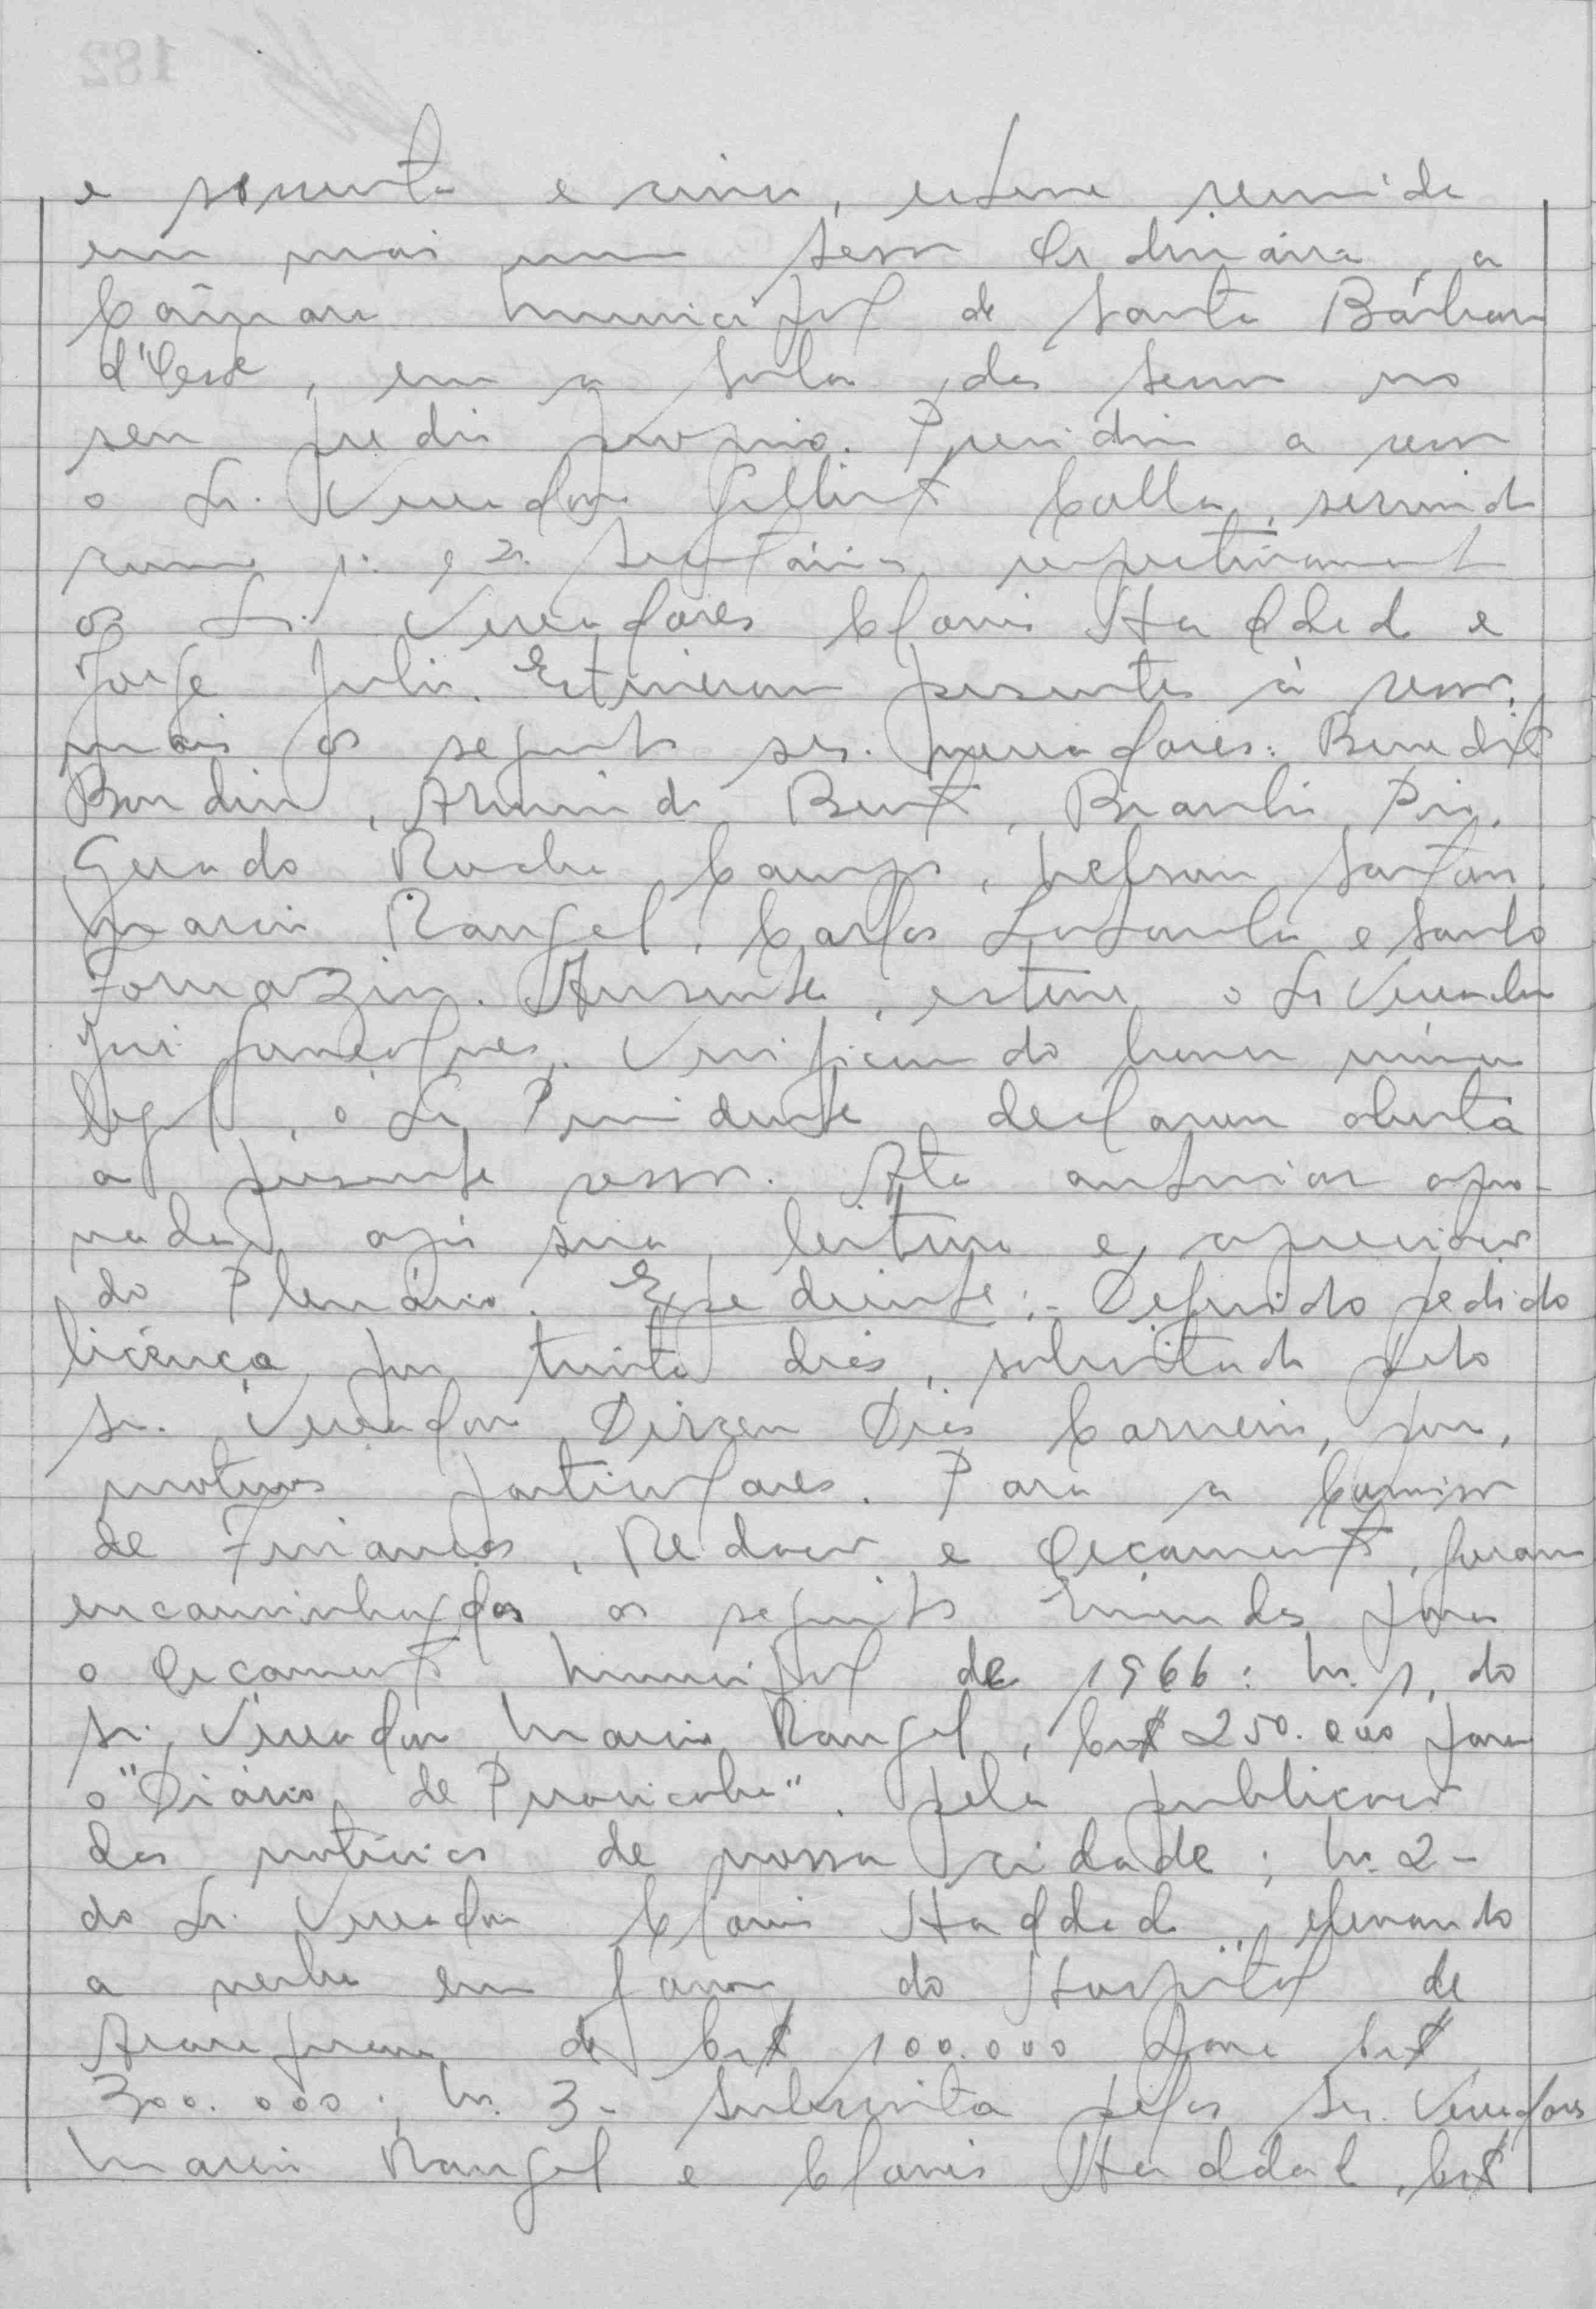 e sessenta e cinco, esteve reunida
em mais uma sessão Ordinária, a
Câmara Municipal de Santa Bárbara
d'Oeste, em a sala das sessões no
seu predio proprio. Presidiu a sessão
o Sr. Vereador Gilberto Calla, servindo
como 1º e 2º Secretários respectivamente
os Srs. Vereadores Clovis Haddad e
Jorge Julio. Estiveram presentes à sessão,
mais os seguintes srs. vereadores: Benedito
Bondim, Armindo Bento, Braulio Pio,
Geraldo Rocha Campos, Nelson
Marcio Rangel, Carlos e Santo
Fornazin. Ausente, esteve o Sr Vereador
Verificando haver número
legal, o Sr. Presidente declarou aberta
a presente sessão. Ata anterior apro-
vada após sua leitura e apreciação
do Plenário. Expediente:- Deferido pedido
licença por trinta dias, solicitado pelo
sr. Vereador Dirceu Dias Carneiro, por
motivos particulares. Para a Comissão
de Finanças, Redação e Orçamento, foram
encaminhadas as seguintes Emendas para
o Orçamento Municipal de 1966: Nº. 1, do
sr. Vereador Marcio Rangel, Cr$ 250.000 para
o "Diário de Piracicaba", pela publicação
das notícias de nossa cidade; Nº. 2-
do Sr. Vereador Clovis Haddad, elevando
a verba em favor do Hospital de
Araraquara de Cr$ 100.000 para Cr$
300.000; Nº. 3- Subscrita pelos Srs. Vereadores
Marcio Rangel e Clovis Haddad, Cr$